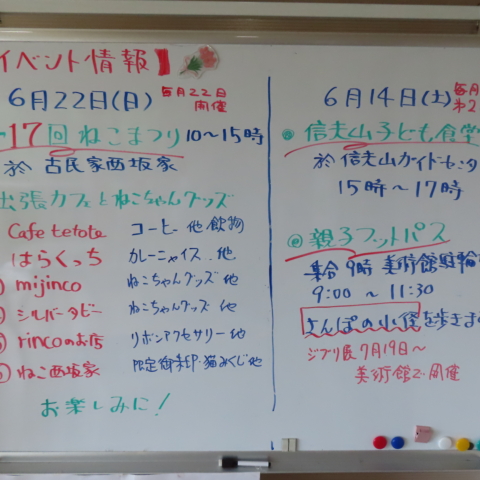 イベント情報
6月22日(日) 毎月22日
開催
17回 ねこまつり 10〜15時
於 古民家西坂家
出張カフェとねこちゃんグッズ
Cafe tetote コーヒー 他 飲物
はらくっち カレーニャイス 他
mijinco ねこちゃんグッズ 他
シルバータビー ねこちゃんグッズ 他
rincoのお店 リボンアクセサリー 他
ねこ西坂家 限定御朱印・猫みくじ他
お楽しみに!
6月14日(土) 毎月
第2
信夫山子ども食堂
於 信夫山ガイドセンタ
15時〜17時
親子フットパス
集合 9時 美術館駐輪
9:00 〜 11:30
さんぽの小径を歩きま
ジブリ展 7月19日〜
美術館で開催